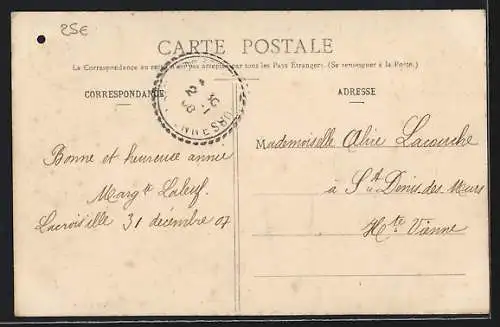 25€
CARTE POSTALE
La Correspondance au recto n'est pas acceptée par tous les Pays Étrangers. (Se renseigner à la Poste.)
CORRESPONDANCE
ADRESSE
Bonne et heureuse année
Margte Laleuf.
Lacroisille 31 décembre 07
Mademoiselle Alice Lacouche
à St Denis des Murs
Hte Vienne